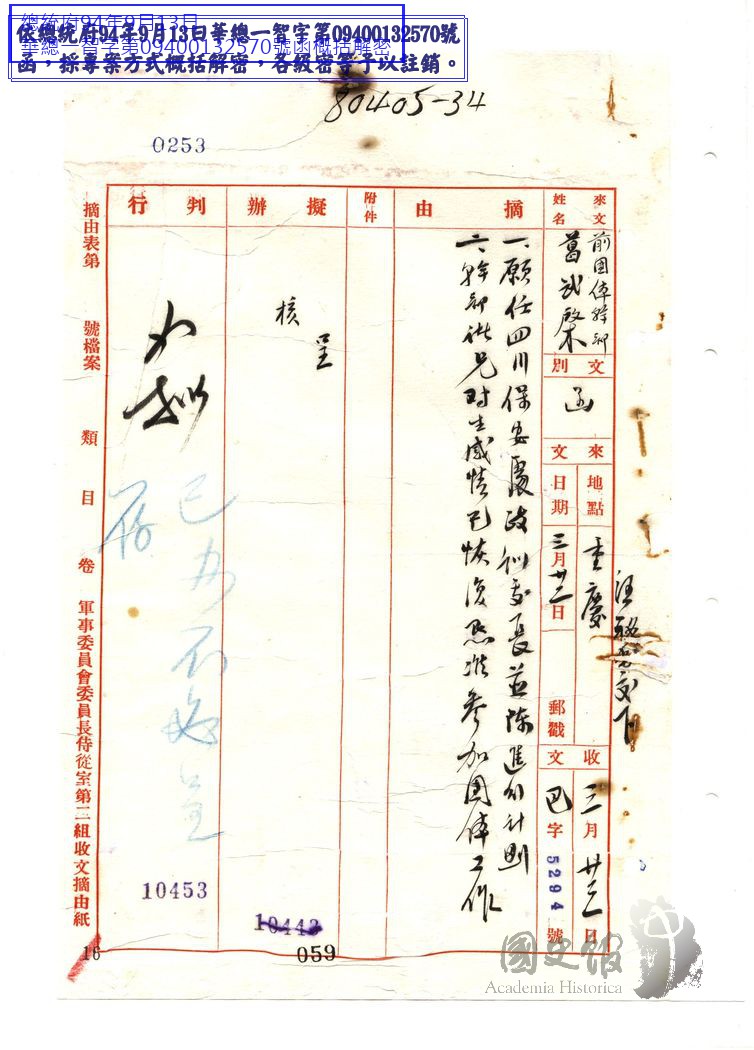 總統府94年9月13日
華總一智字第09400132570號函概括解密
依總統府94年9月13日華總一智字第09400132570號
函，採專案方式概括解密，各級密等予以註銷。
80405-34
0253
來文
姓名
前團体幹部
葛武棨
文別
函
來文
地點
日期
重慶
三月廿三日
郵戳
收文
三月廿三日
巴字5294號
交下
摘由
一、願任四川保安處政治部長並陳進行計劃
二、幹部批兄對生感情已恢復照准參加團体工作
附件
擬辦
呈
核
判行
已办不必呈
存
10453
10443
059
摘由表第 號檔案 類 目 卷 軍事委員會委員長侍從室第二組收文摘由紙
16
國史館
Academia Historica